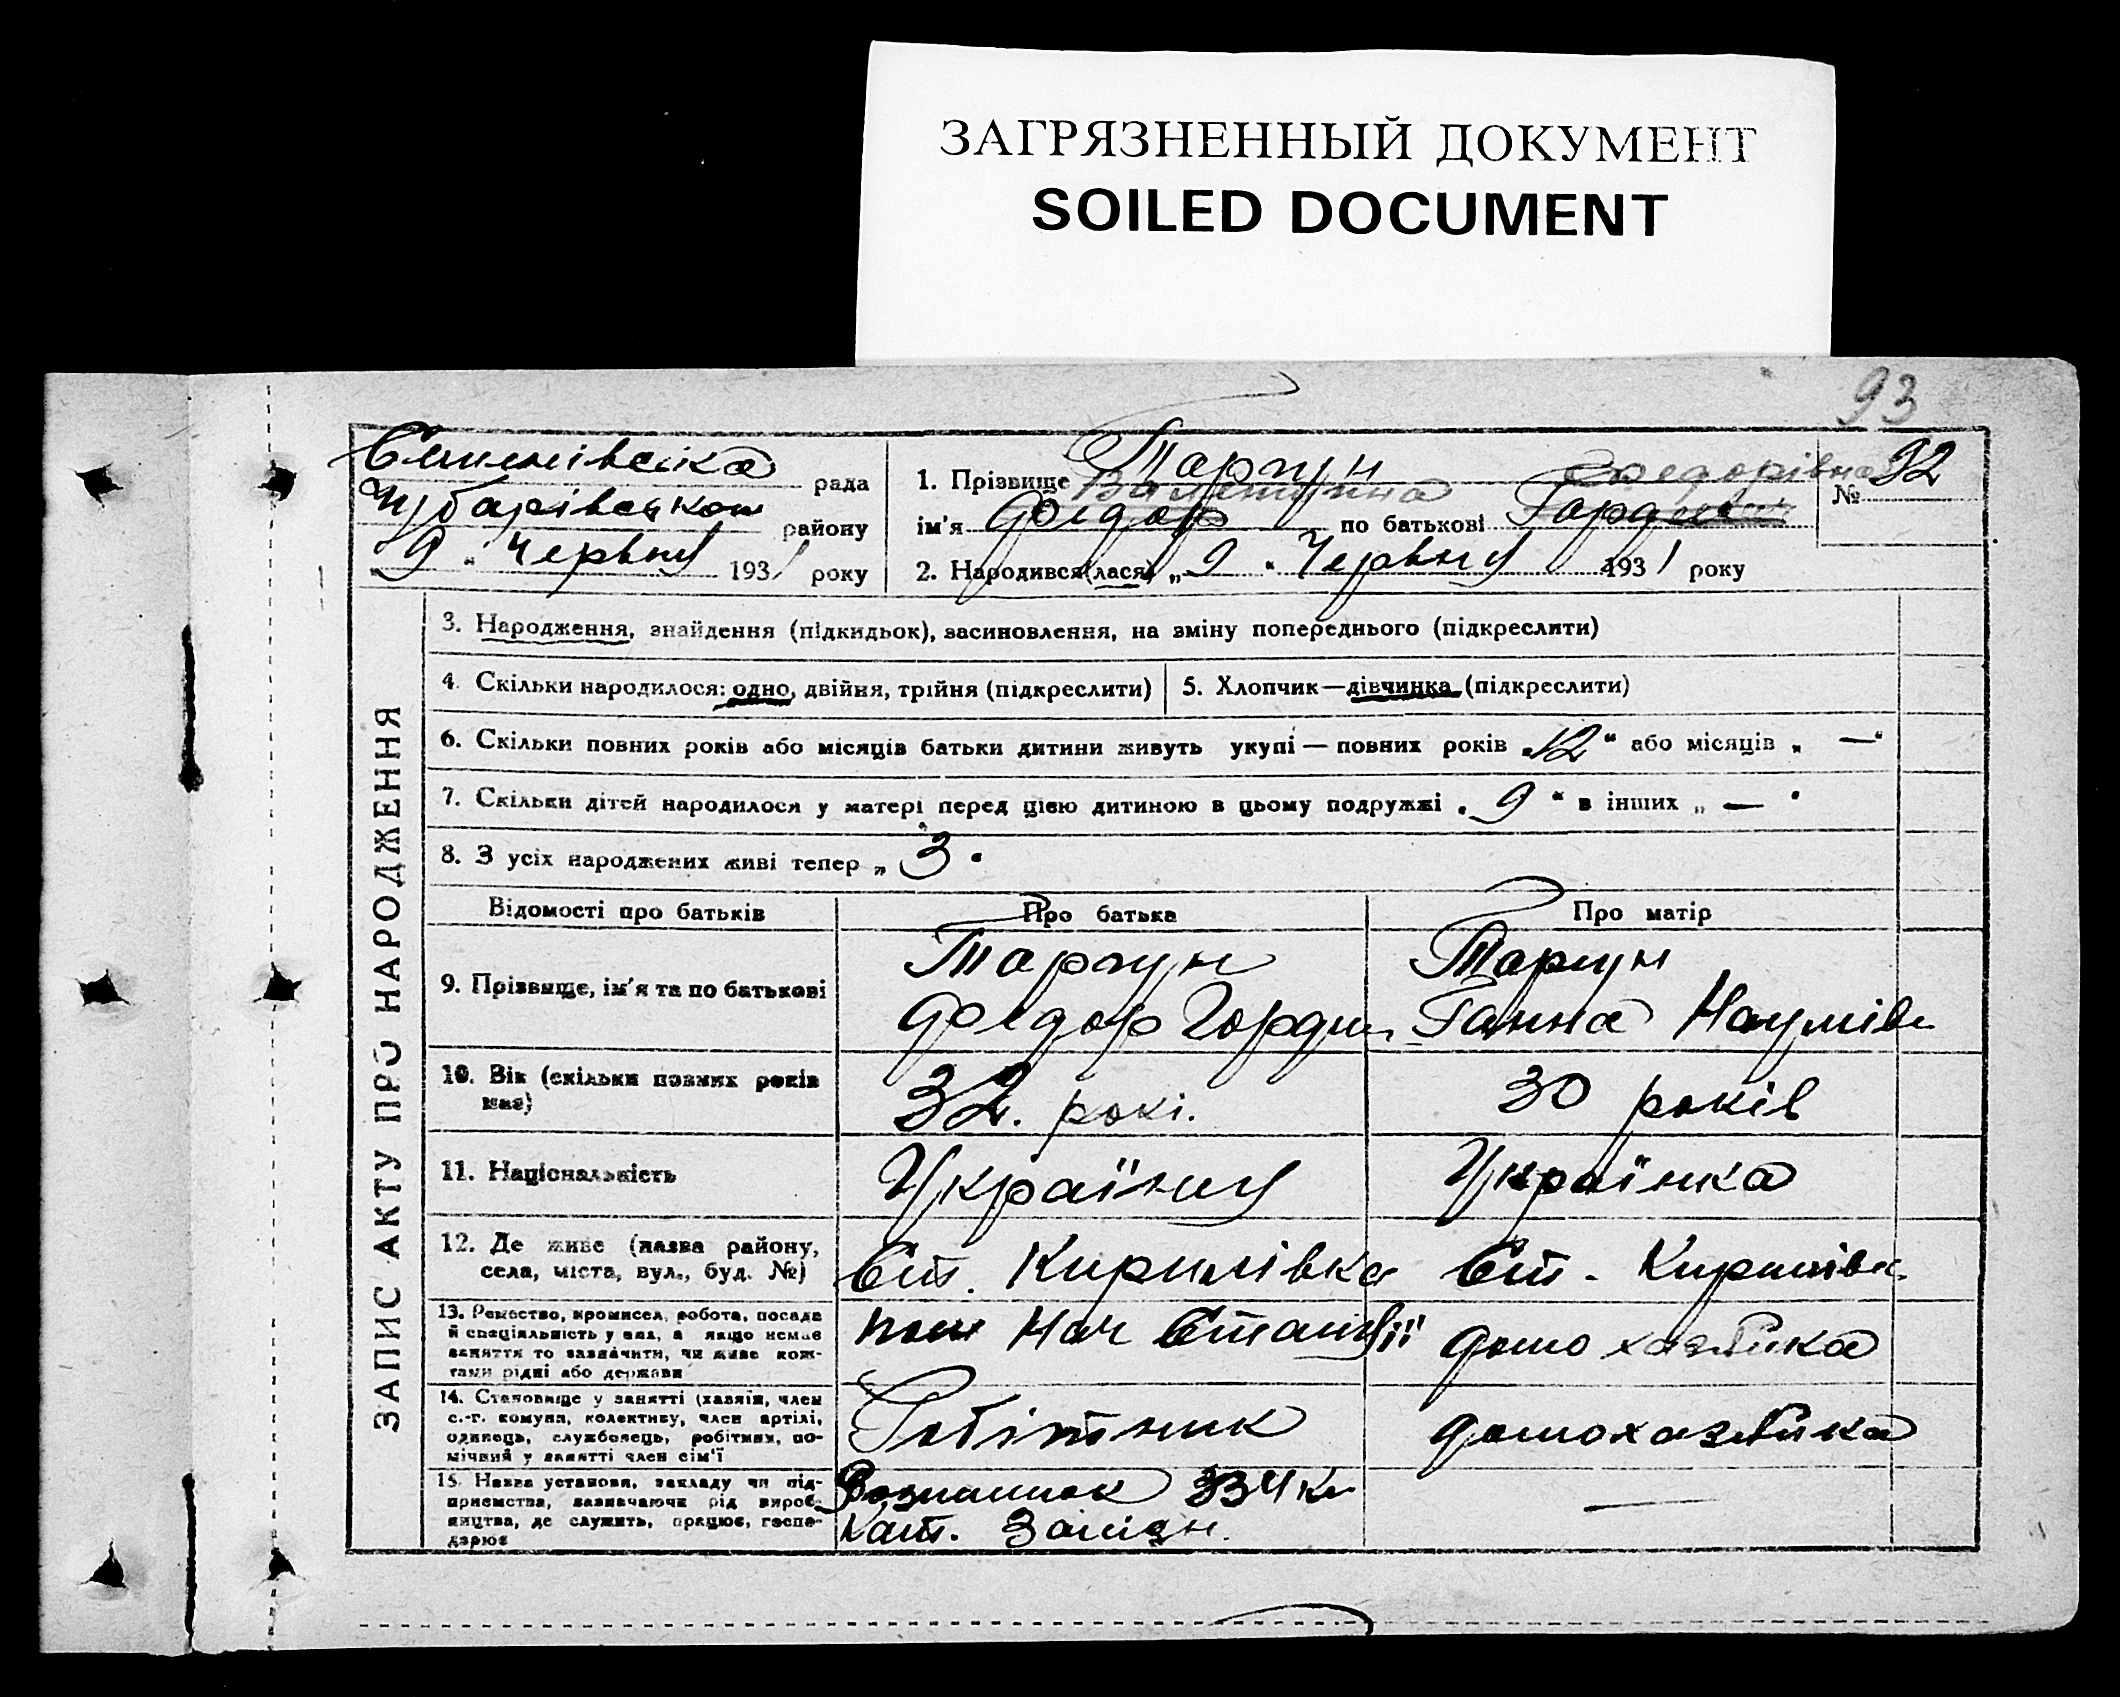 ЗАГРЯЗНЕННЫЙ ДОКУМЕНТ
SOILED DOCUMENT
93
рада
району
9 " Червня 1931 року
1. Прізвище Таргун
Валентина Федорівна
ім'я Федор по батькові
№ 92
2. Народився(лася) „ 9 " Червня 1931 року
ЗАПИС АКТУ ПРО НАРОДЖЕННЯ
3. Народження, знайдення (підкидьок), засиновлення, на зміну попереднього (підкреслити)
4. Скільки народилося: одно, двійня, трійня (підкреслити)
5. Хлопчик—дівчинка (підкреслити)
6. Скільки повних років або місяців батьки дитини живуть укупі — повних років „12" або місяців „ — "
7. Скільки дітей народилося у матері перед цією дитиною в цьому подружжі „ 9 " в інших „ — "
8. З усіх народжених живі тепер „ 3 "
Відомості про батьків
Про батька
Про матір
9. Прізвище, ім'я та по батькові
Таргун
Федор Горди
Таргун
Ганна Наумівн
10. Вік (скільки повних років має)
32. рокі.
30 років
11. Національність
Українец
Українка
12. Де живе (назва району, села, міста, вул., буд. №)
Ст. Кирилівка
Ст. Кирилівк
13. Ремество, промисел, робота, посада й спеціяльність у них, а якщо немає заняття то зазначити, чи живе коштами рідні або держави
пом Нач Станції
домохазяйка
14. Становище у занятті (хазяїн, член с.-г. комуни, колективу, член артілі, одинець, службовець, робітник, помічний у занятті член сім'ї
Робітник
домохазяйка
15. Назва установи, закладу чи підприємства, зазначаючи рід виробництва, де служить, працює, господарює
334 км
Кат. Залізн.
—